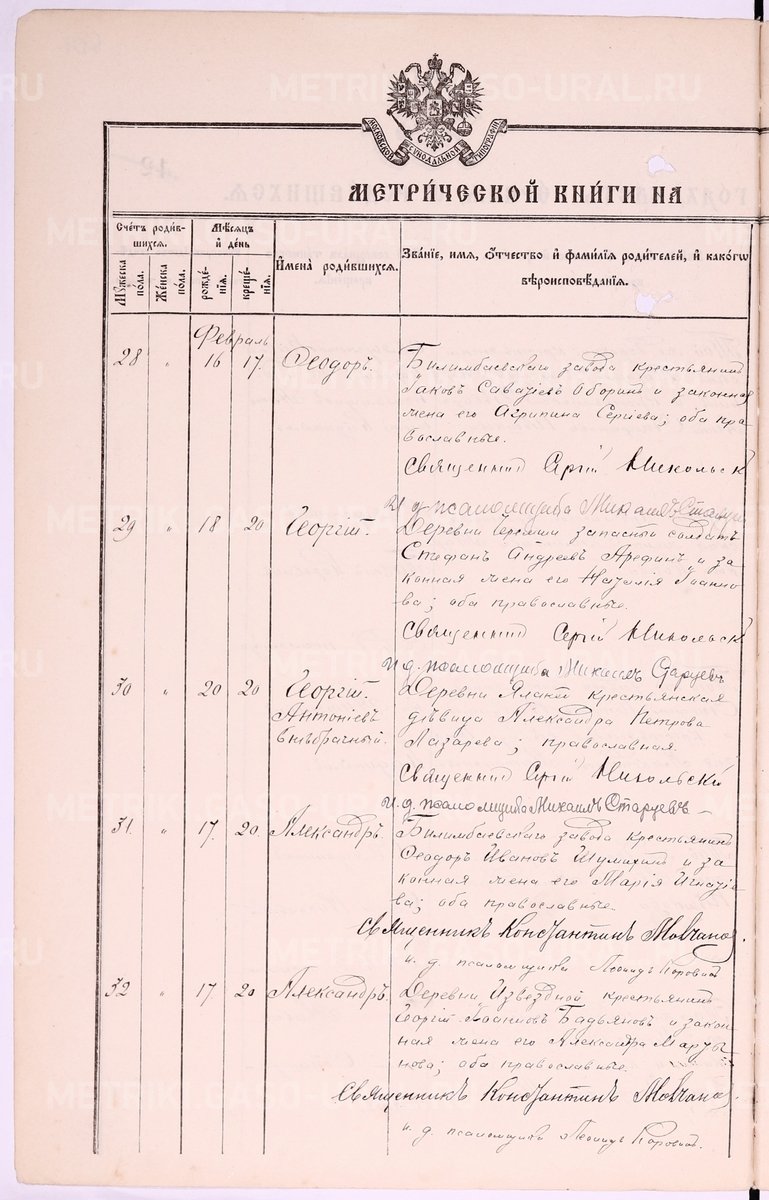 МОСКОВСКОЙ СѴНОДАЛЬНОЙ ТИПОГРАФІИ
МЕТРИ́ЧЕСКОЙ КНИ́ГИ НА
Сче́тъ роди́в-
шихсѧ.
Мꙋ́жеска по́ла.
Же́нска по́ла.
Мѣ́сѧцъ
и҆ де́нь
рожде́-
нїѧ.
креще́-
нїѧ.
И҆мена̀ роди́вшихсѧ.
Зва́нїе, и҆́мѧ, ѻ҆́тчество и҆ фами́лїѧ роди́телей, и҆ како́гѡ
вѣроисповѣ́данїѧ.
Февраль
28 „ 16 17. Ѳеодоръ. Билимбаевскаго завода крестьянинъ
Іаковъ Оборинъ и законная
жена его Агрипина Сергіева; оба пра-
вославные.
Священникъ Сергій Никольск
И. д. псаломщика Михаилъ Старцевъ
29 „ 18 20 Георгій. Деревни запасный солдатъ
Стефанъ Андреевъ Арефинъ и за-
конная жена его Наталія Іоанно-
ва; оба православные.
Священникъ Сергій Никольск
И. д. псаломщика Михаилъ Старцевъ
30 „ 20 20 Георгій. Деревни крестьянская
Антоніевъ дѣвица Александра Петрова
внѣбрачный. Лазарева; православная.
Священникъ Сергій Никольскій
И. д. псаломщика Михаилъ Старцевъ
31. „ 17. 20. Александръ. Билимбаевскаго завода крестьянинъ
Ѳеодоръ Ивановъ Шумихинъ и за-
конная жена его Марія Игнатіе-
ва; оба православные.
Священникъ Константинъ Мовчанов.
и. д. псаломщика Леонидъ Коровинъ
32 „ 17. 20 Александръ. Деревни Извездной крестьянинъ
Георгій Іоанновъ Бадьяновъ и закон-
ная жена его Александра Марты-
нова; оба православные.
Священникъ Константинъ Мовчанов.
и. д. псаломщика Леонидъ Коровинъ.
METRIKI.GASO-URAL.RU